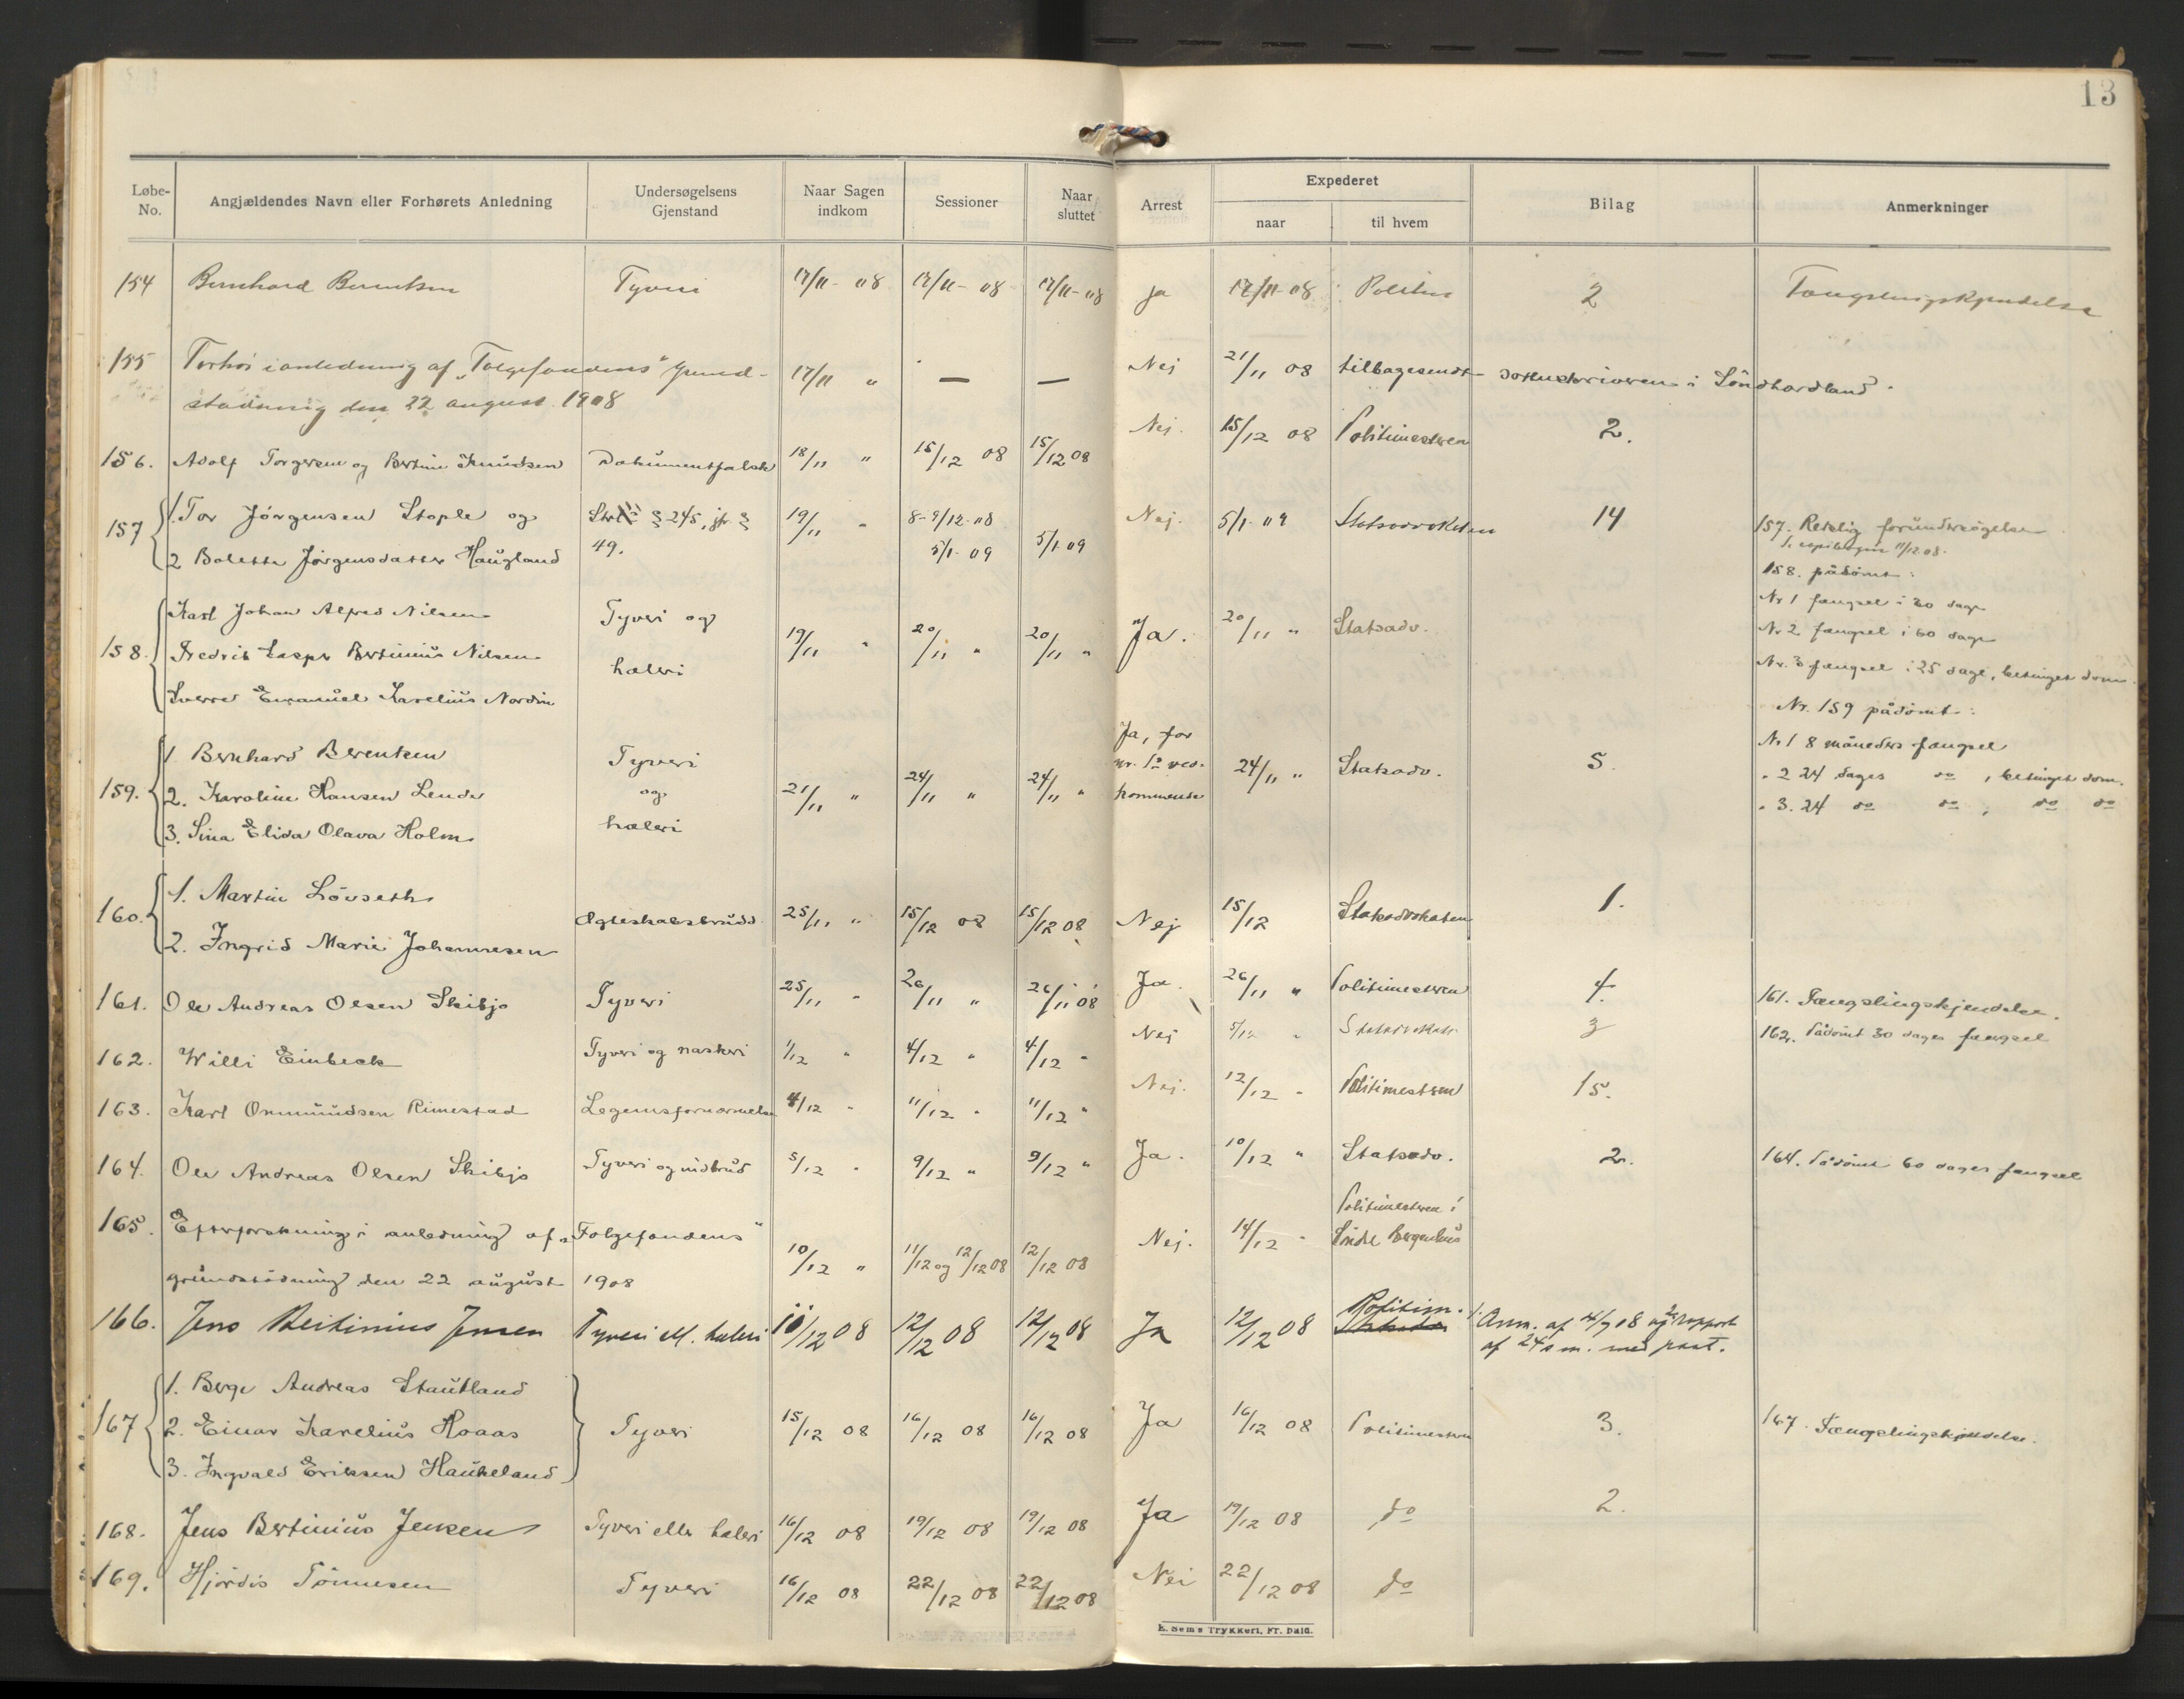 13
Løbe-No. Angjældendes Navn eller Forhørets Anledning Undersøgelsens Gjenstand Naar Sagen indkom Sessioner Naar sluttet Arrest Expederet naar til hvem Bilag Anmerkninger
154 Bernhard Berentsen Tyveri 17/11 - 08 17/11 - 08 17/11 - 08 ja 17/11 - 08 Politiet 2 Fængslingskjendelse
155 Forhør i anledning af „Folgefondens" grund- 17/11 " — — Nej 21/11 08 tilbagesendt sorenskriveren i Söndhordland.
stødning den 22 august 1908
156. Adolf Torgersen og Bertine Knudsen Dokumentfalsk 18/11 " 15/12 08 15/12 08 Nej. 15/12 08 Politimesteren 2.
157 1. Tor Jörgensen Stople og § 245, jfr. § 19/11 " 8-9/12 08 Nej. 5/1 09 Statsadvokaten 14 157. Retslig forundersøgelse
2 Bolette Jørgensdatter Haugland 49. 5/1 09 5/1 09 11/12 08.
158. påsømt:
158. Karl Johan Alfred Nilsen Tyveri og 19/11 " 20/11 " 20/11 " Ja. 20/11 " Statsadv. Nr 1 fængsel i 20 dage
Fredrik Kasper Bertinius Nilsen Nr 2 fængsel i 60 dage
Sverre Emanuel Karelius Nordin hæleri Nr. 3 fængsel i 25 dage, betinget dom.
Nr. 159 pådömt:
159. 1 Bernhard Berentsen Tyveri Ja, for Nr 1 8 måneders fængsel
2. Karoline Hansen Lende og 21/11 " 24/11 " 24/11 " nr. 1s ved- 24/11 " Statsadv. 5. " 2 24 dages do , betinget dom.
3. Sina Elida Olava Holm hæleri kommende " 3. 24 do do , do do
160. 1. Martin Lövseth Ægteskabsbrudd 25/11 " 15/12 08 15/12 08 Nej 15/12 Statsadvokaten 1.
2. Ingrid Marie Johannesen
161. Ole Andreas Olsen Skibjo Tyveri 25/11 " 26/11 " 26/11 08 Ja. 26/11 " Politimesteren 4. 161. Fængslingskjendelse.
162. Willi Einbeck Tyveri og naskeri 1/12 " 4/12 " 4/12 " Nej 5/12 " Statsadvokat 3 162. Pådömt 30 dages fængsel
163. Karl Ommundsen Rimestad Legemsfornærmelse 4/12 " 11/12 " 11/12 " Nej. 12/12 " Politimestren 15.
164. Ole Andreas Olsen Skibjo Tyveri og indbrud 5/12 " 9/12 " 9/12 " Ja. 10/12 " Statsadv. 2. 164. Pådömt 60 dages fængsel
165. Efterforskning i anledning af „Folgefondens" 10/12 " 11/12 og 12/12 08 12/12 08 Nej. 14/12 " Politimesteren i Söndre Bergenhus
grundstödning den 22 august 1908
166. Jens Bertinius Jensen Tyveri el. hæleri 11/12 08 12/12 08 12/12 08 Ja 12/12 08 Politim. Anm. af 08 og rapport
af 24 s m. med paat.
167 1. Berge Andreas Stautland
2. Einar Karelius Hoaas Tyveri 15/12 08 16/12 08 16/12 08 Ja 16/12 08 Politimestren 3. 167. Fængslingskjendelse.
3. Ingvald Eriksen Haukeland
168. Jens Bertinius Jensen Tyveri eller hæleri 16/12 08 19/12 08 19/12 08 Ja 19/12 08 do 2.
169. Hjördis Tönnesen Tyveri 16/12 08 22/12 08 22/12 08 Nei 22/12 08 do
E. Sem's Trykkeri, Fr. hald.